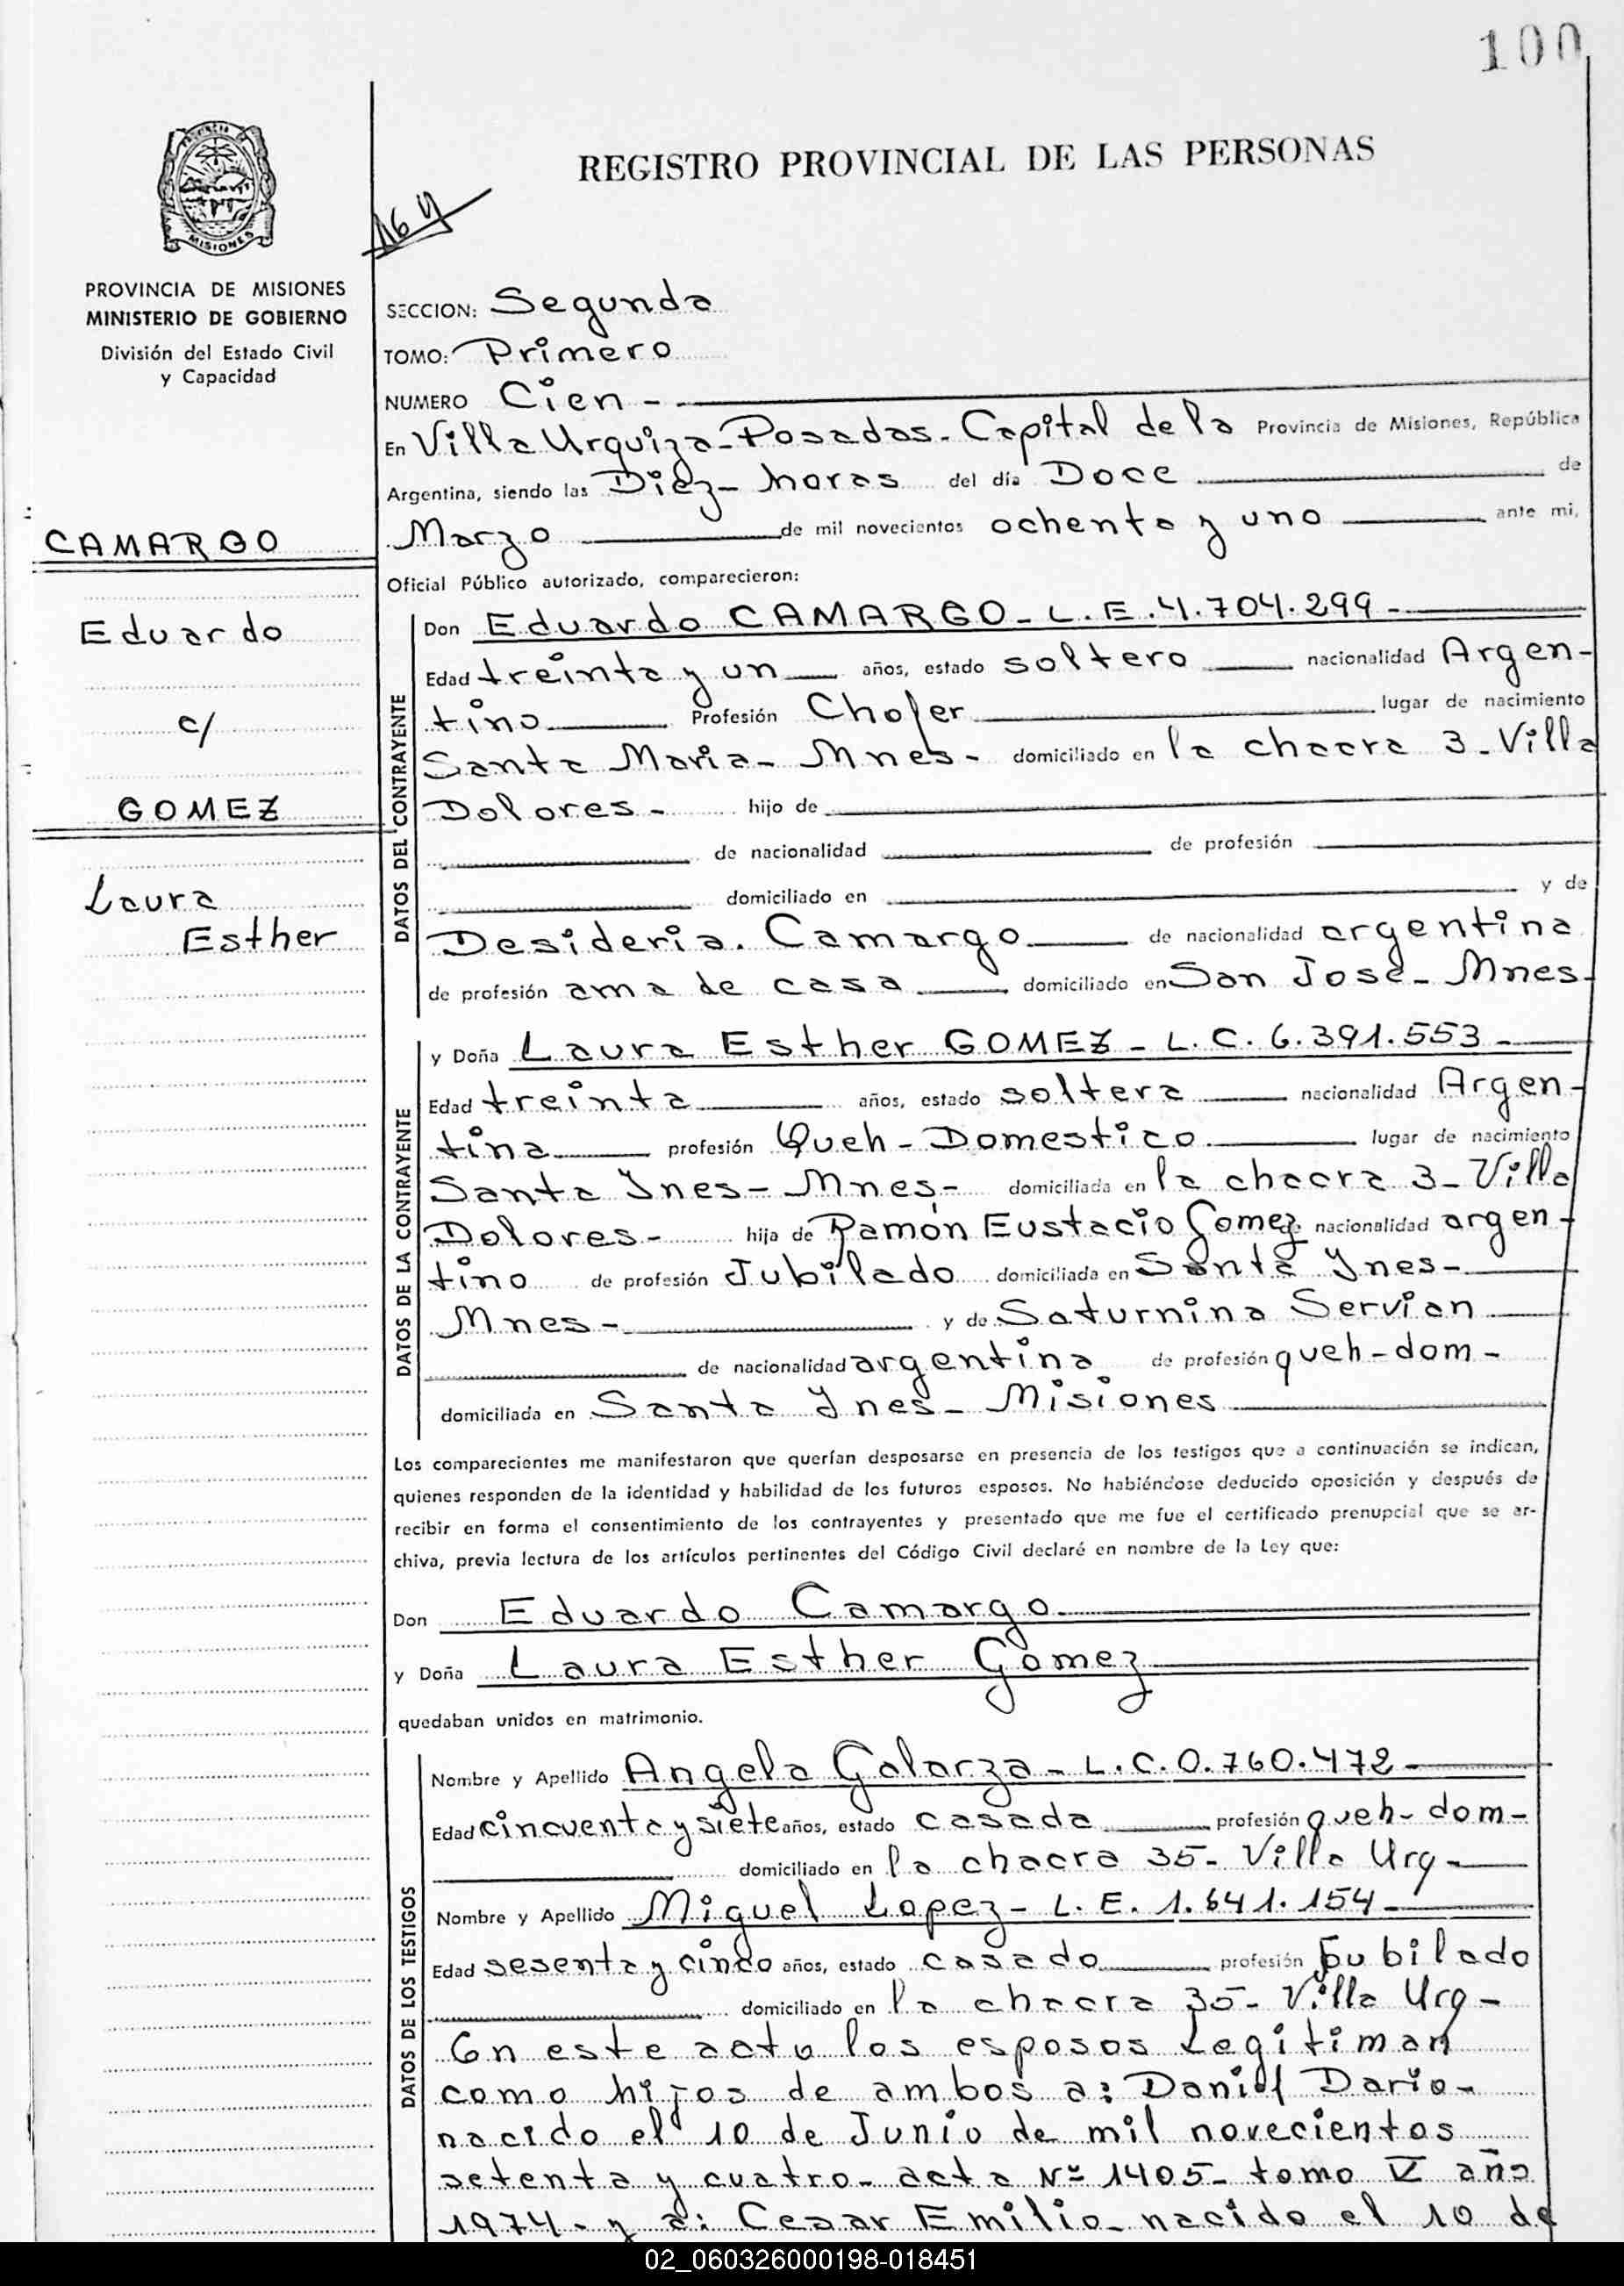 100
REGISTRO PROVINCIAL DE LAS PERSONAS
PROVINCIA
MISIONES
PROVINCIA DE MISIONES
MINISTERIO DE GOBIERNO
División del Estado Civil
y Capacidad
CAMARGO
Eduardo
c/
GOMEZ
Laura
Esther
SECCION: Segunda
TOMO: Primero
NUMERO Cien -
En Villa Urquiza - Posadas - Capital de la Provincia de Misiones, República
Argentina, siendo las Diez - horas del día Doce de
Marzo de mil novecientos ochenta y uno ante mi,
Oficial Público autorizado, comparecieron:
DATOS DEL CONTRAYENTE
Don Eduardo CAMARGO - L.E. 4.704.299 -
Edad treinta y un años, estado soltero nacionalidad Argen-
tino Profesión Chofer lugar de nacimiento
Santa Maria - Mnes - domiciliado en la chacra 3 - Villa
Dolores - hijo de
de nacionalidad de profesión
domiciliado en y de
Desideria. Camargo de nacionalidad argentina
de profesión ama de casa domiciliado en San José - Mnes -
DATOS DE LA CONTRAYENTE
y Doña Laura Esther GOMEZ - L.C. 6.391.553 -
Edad treinta años, estado soltera nacionalidad Argen-
tina profesión Queh - Domestico lugar de nacimiento
Santa Ynes - Mnes - domiciliada en la chacra 3 - Villa
Dolores - hija de Ramón Eustacio Gomez de nacionalidad argen-
tino de profesión Jubilado domiciliada en Santa Ynes -
Mnes - y de Saturnina Servian
de nacionalidad argentina de profesión queh - dom -
domiciliada en Santa Ynes - Misiones
Los comparecientes me manifestaron que querían desposarse en presencia de los testigos que a continuación se indican,
quienes responden de la identidad y habilidad de los futuros esposos. No habiéndose deducido oposición y después de
recibir en forma el consentimiento de los contrayentes y presentado que me fue el certificado prenupcial que se ar-
chiva, previa lectura de los artículos pertinentes del Código Civil declaré en nombre de la Ley que:
Don Eduardo Camargo
y Doña Laura Esther Gomez
quedaban unidos en matrimonio.
DATOS DE LOS TESTIGOS
Nombre y Apellido Angela Galarza - L.C. 0.760.472
Edad cincuenta y siete años, estado casada profesión queh - dom -
domiciliado en la chacra 35 - Villa Urq -
Nombre y Apellido Miguel Lopez - L.E. 1.641.154 -
Edad sesenta y cinco años, estado casado profesión Jubilado
domiciliado en la chacra 35 - Villa Urq -
En este acto los esposos Legitiman
como hijos de ambos a: Daniel Dario -
nacido el 10 de Junio de mil novecientos
setenta y cuatro - acta Nº 1405 - tomo V año
1974 - y a: Cesar Emilio - nacido el 10 de
02_060326000198-018451